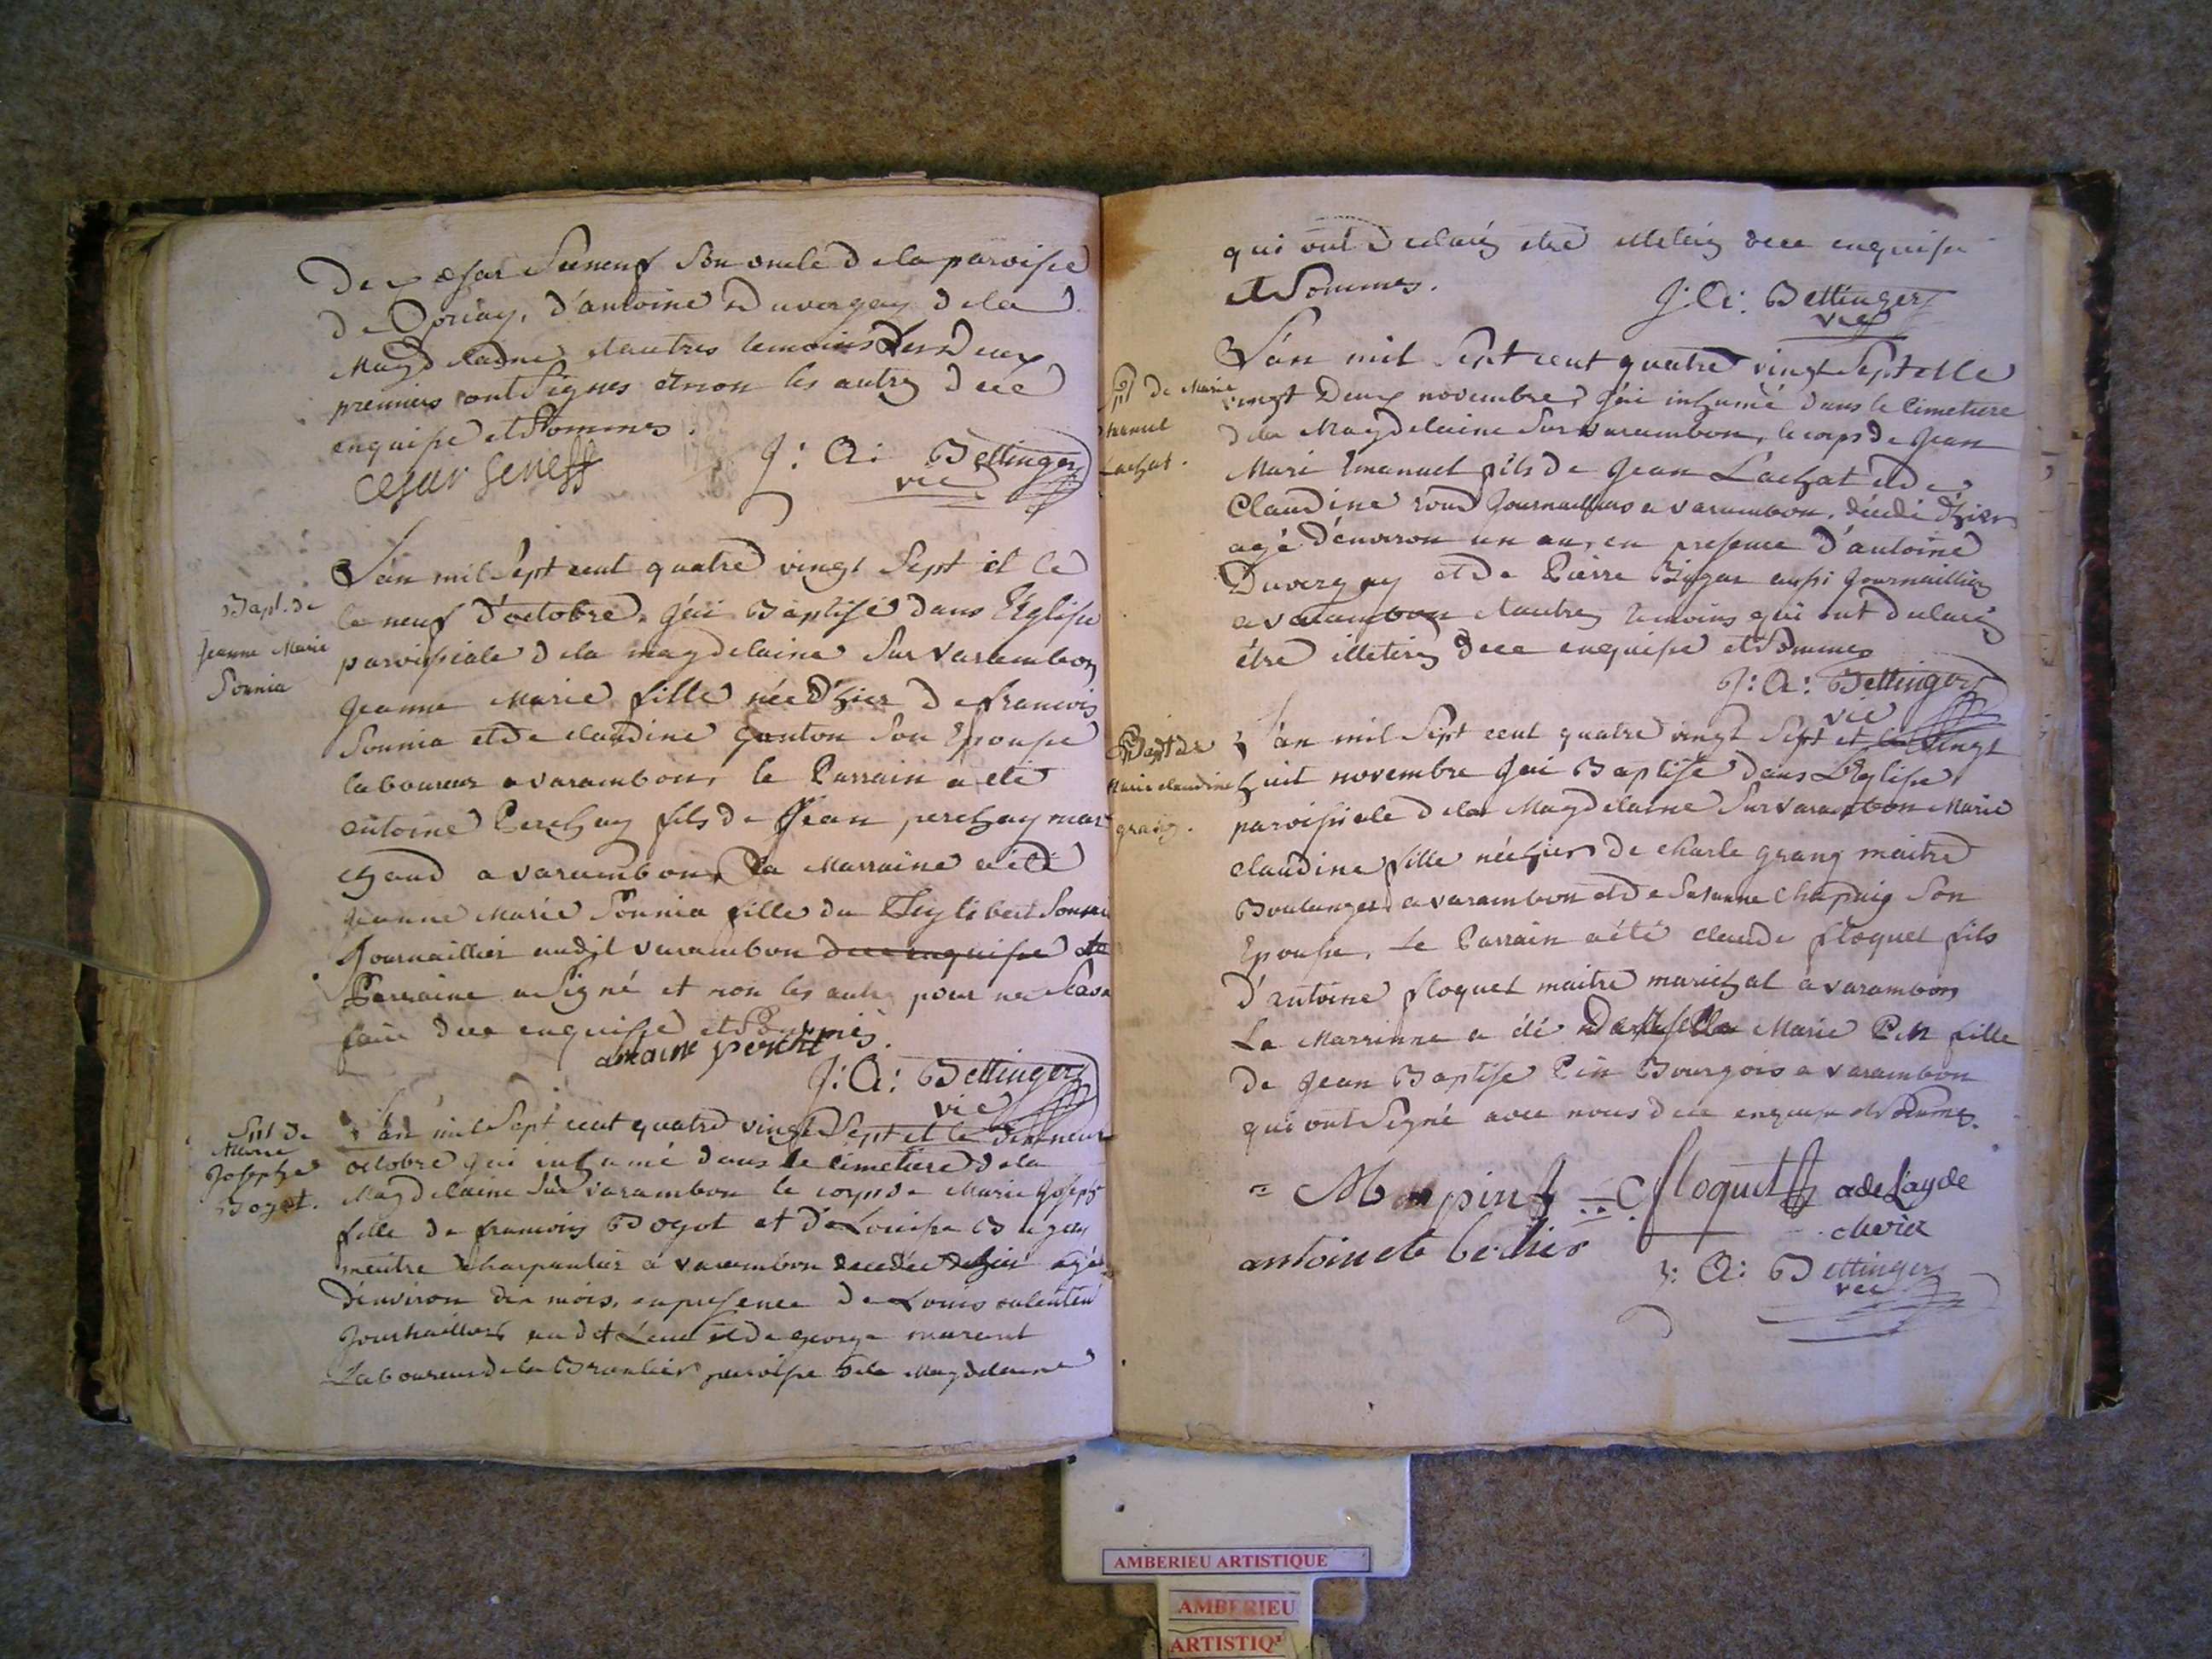 De cesar Seeneuf Son oncle de la paroisse
de priay, d'antoine Duvergay de la
Magdelaine et autres temoins Les Deux
premiers ont Signes et non les autres de ce
enquise et Sommes.
cesar seneff J: A: Bettinger
vic
L'an mil Sept cent quatre vingt Sept et le
Bapt. de
Jeanne Marie
Sonnia
le neuf d'octobre, j'ai Baptisé dans l'Eglise
paroissiale de la magdelaine Sur varambon
Jeanne Marie fille née d'hier de francois
Sonnia et de claudine Gonton Son Epouse
laboureur a varambon, le Parrain a eté
antoine Perchay fils de Jean perchay mar
chand a varambon, La Marraine a été
jeanne Marie Sonnia fille du
Journaillier audit varambon de ce enquise
Parraine a Signé et non les autres pour ne Scavoir
faire de ce enquise et Sommés.
antoine perché
J: A: Bettinger
vic
L'an mil Sept cent quatre vingt Sept et le dix neuf
Spt de
Marie
Josephe
Bogot.
octobre j'ai inhumé dans le cimetiere de la
Magdelaine Sur varambon le corps de Marie Joseph
fille de francois Bogot et de Louise
maitre charpentier a varambon decedée d'hier agée
d'environ dix mois, en presence de Louis
Journaillier au dit Lieu et de george
Laboureur de la paroisse de la Magdelaine
qui ont declaré etre illeteré de ce enquise
et Sommes.
J: A: Bettinger
vic
L'an mil Sept cent quatre vingt Sept et le
Spt de Marie
Emanuel
Lachat.
vingt Deux novembre, j'ai inhumé dans le cimetiere
de la Magdelaine Sur varambon, le corps de Jean
Marie Emanuel fils de Jean Lachat et de
Claudine Journailliers a varambon, décédé d'hier
agé d'environ un an, en presence d'antoine
Duvergay et de Pierre aussi Journaillier
a varambon et autres temoins qui ont declaré
être illeteré de ce enquise et Sommes
J: A: Bettinger
vic
Bapt de
Marie claudine
grang.
L'an mil Sept cent quatre vingt Sept et le vingt
huit novembre j'ai Baptisé dans L'Eglise
paroissiale de la Magdelaine Sur varambon Marie
claudine fille née hier de charle grang maitre
Boulanger a varambon et de Susanne Chapuis Son
Epouse, Le Parrain a été claude floquet fils
D'antoine floquet maitre marichal a varambon
La Marrinne a été Marie Pin fille
de Jean Baptise Pin Bourgois a varambon
qui ont Signé avec nous de ce enquise et Sommes.
M pin C floquet adelayde
chevier
antoinete
J: A: Bettinger
vic
AMBERIEU ARTISTIQUE
AMBERIEU
ARTISTIQ